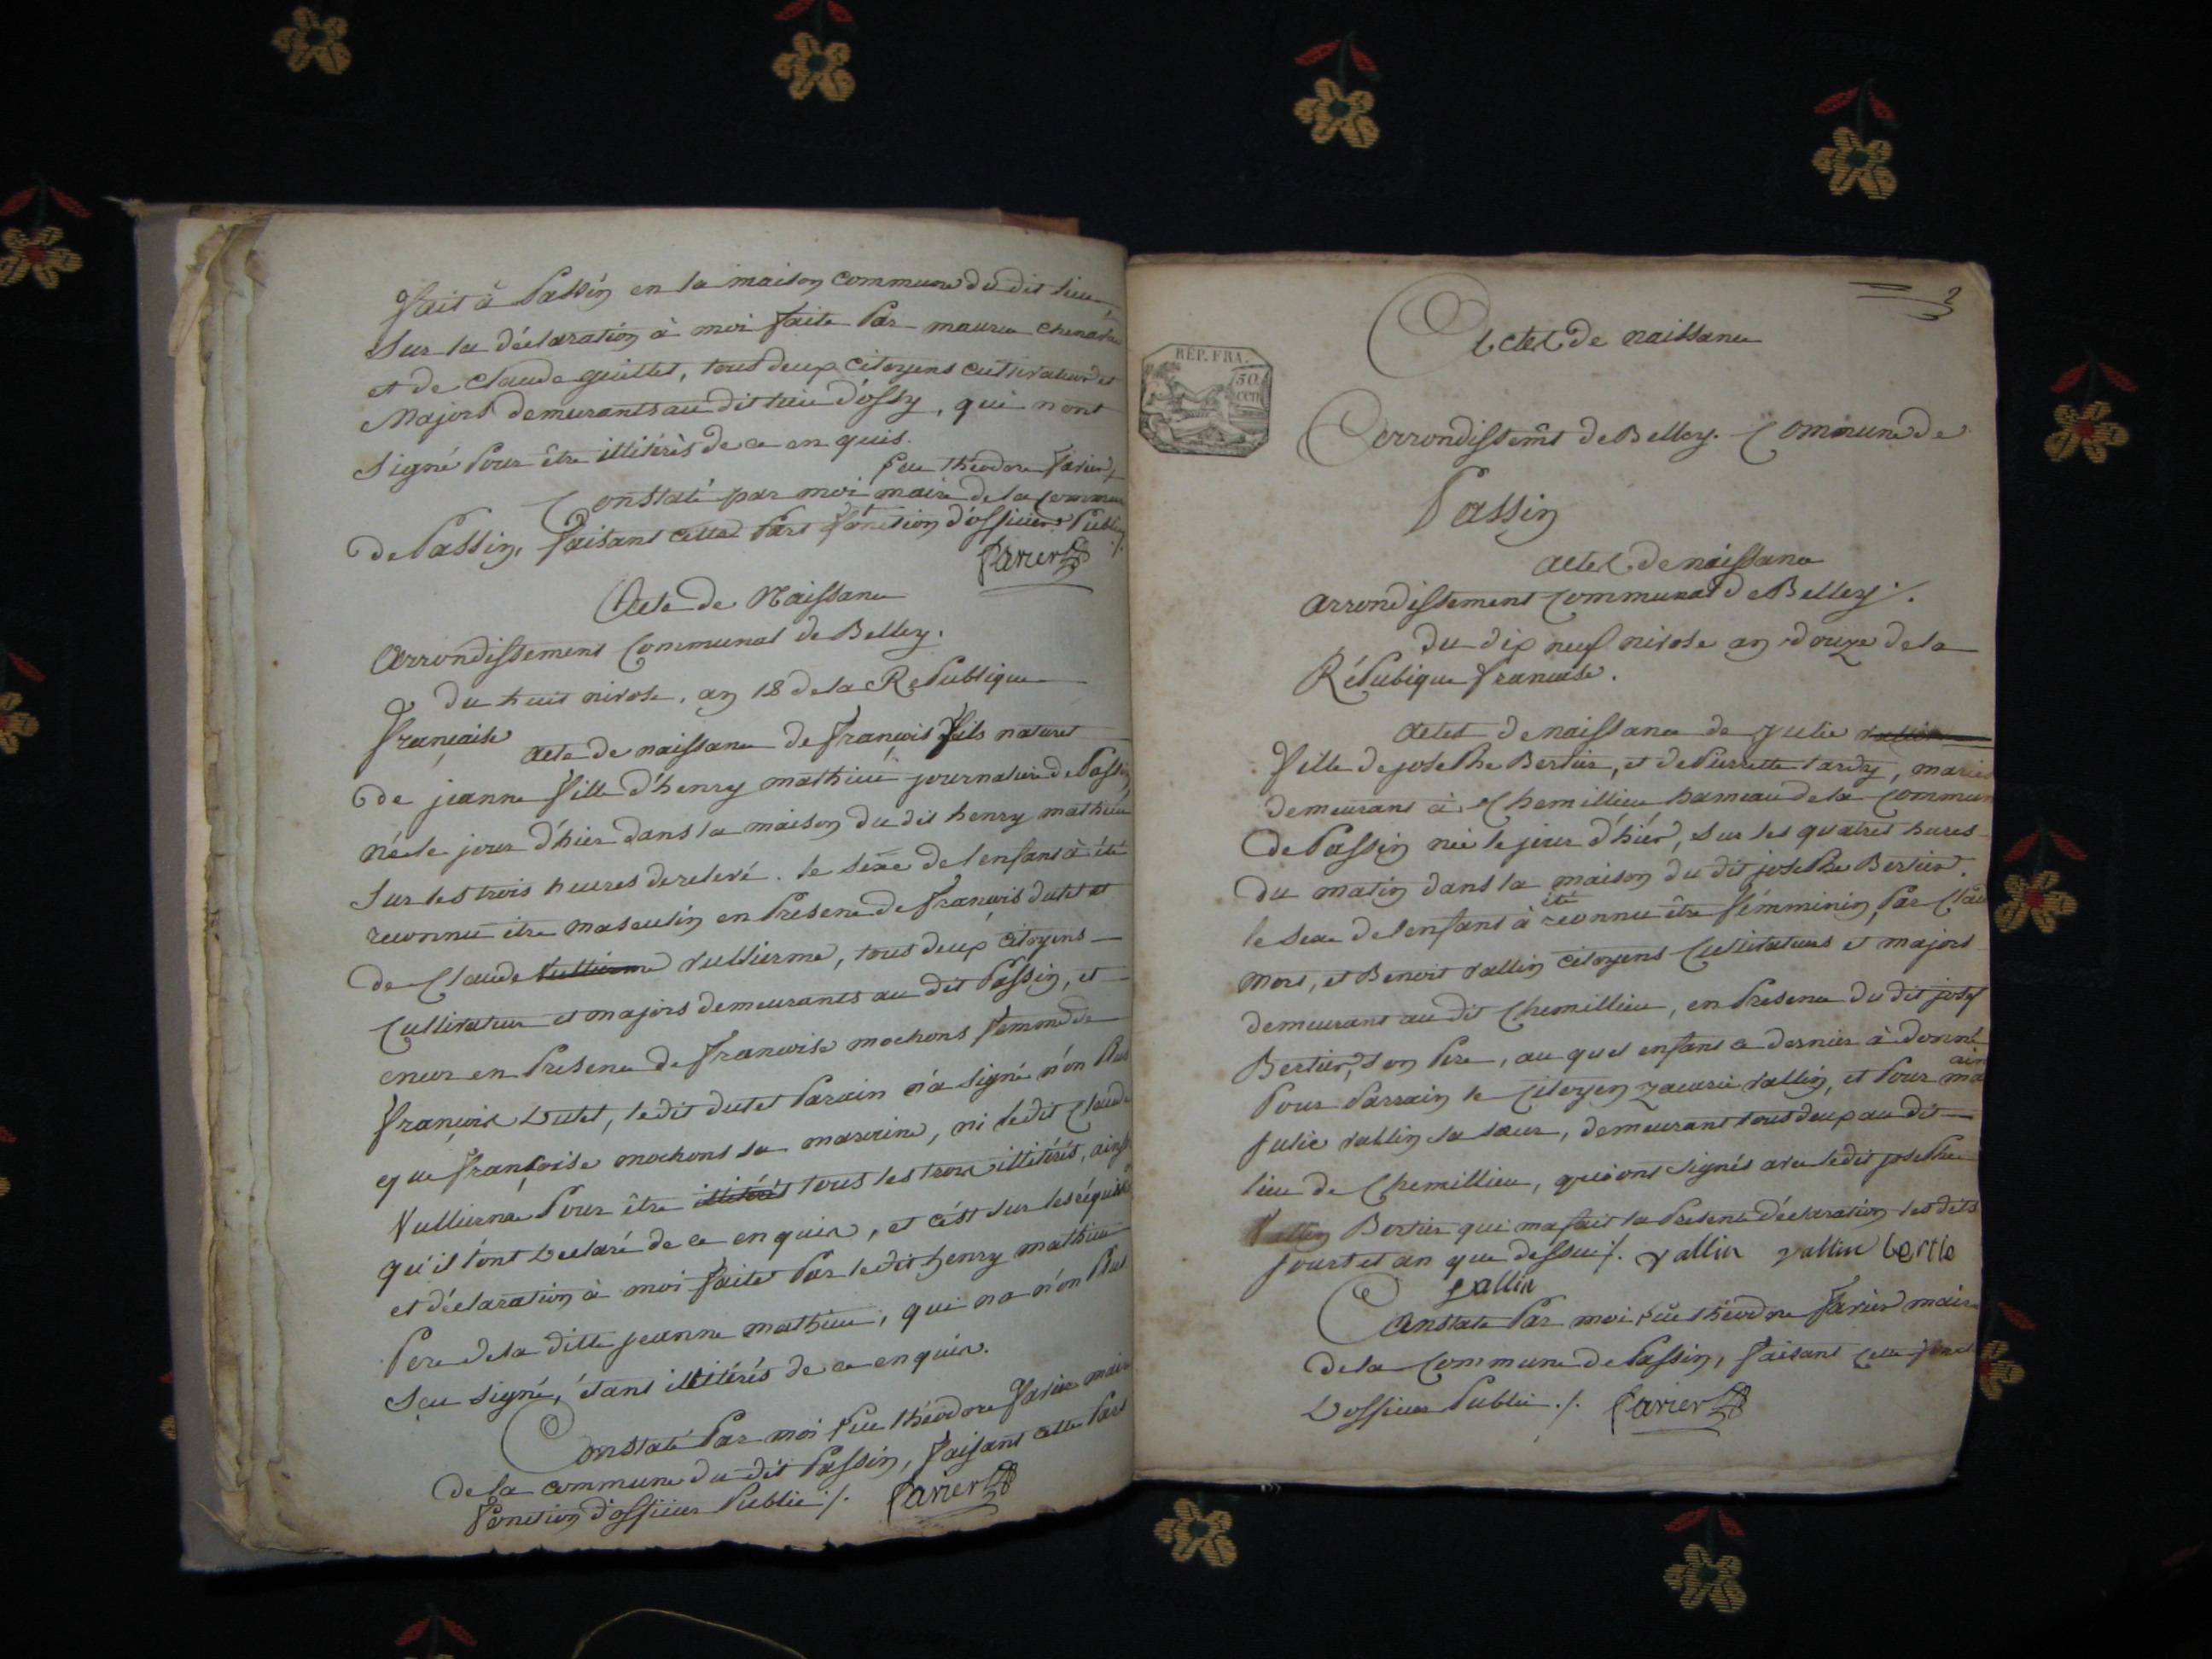 fait à Passin en la maison commune du dit lieu
Sur la déclaration à moi faite Par maurice
et de Claude guillet, tous deux citoyens cultivateur et
Majors demurants au dit lieu d'ossy, qui nont
Signé Pour être illitérés de ce en quis.
théodore
Constaté par moi maire de la commune
de Passin, faisant cette Part fonction d'officier Public ./.
Acte de Naissance
Arrondissement Communal de Belley.
du huit nivose, an 12 de la République
française
acte de naissance de françois fils naturel
de jeanne fille d'henry mathieu journalier de Passin
né le jour d'hier dans la maison du dit henry mathieu
Sur les trois heures de relevé. le sexe de lenfant à été
reconnu être masculin en Présence de françois dutet et
de Claude vullierme, tous deux citoyens
Cultivateur et majors demeurants au dit Passin, et
encor en Présence de francoise mochons femme de
françois Dutet, le dit dutet Parain n'a signé n'on Plus
que françoise mochons sa marraine, ni le dit Claude
Vullierme Pour être illitérés tous les trois illitérés, ainsi
qu'il l'ont Declaré de ce en quis, et c'est sur les
et déclaration à moi faite Par le dit henry mathieu
Pere de la ditte jeanne mathieu, qui na n'on Plus
Sçu signé, étant illitérés de ce en quis.
Constaté Par moi théodore maire
de la commune du dit Passin, faisant cette Part
fonction d'officier Public ./.
2
Actes de naissance
RÉP. FRA.
50.
CEN
Arrondissemt de Belley. Commune de
Passin
actes de naissance
arrondissement Communal de Belley ./.
du dix neuf nivose an douze de la
Répubique francaise.
actes de naissance de julie
fille de josephe Bertier, et de Pierrette tardy, mariés
demeurant à Chemillieu hameau de la Commune
de Passin née le jour d'hier, Sur les quatres hures
du matin dans la maison du dit josephe Bertier.
le sexe de lenfant à été reconnu être femminin, Par
Mort, et Benoit vallin citoyens Cultivateurs et majors
demeurant au dit Chemillieu, en Présence du dit josef
Bertier, son Pere, au quel enfant ce dernier à donné
Pour Parrain le Citoyen vallin, et Pour
julie vallin sa sœur, demeurant tous deux au dit
lieu de Chemillieu, qui ont signés avec le dit josephe
Bertier qui ma fait la Présente déclaration les dits
jour et an que dessus ./. vallin vallin
vallin
Constaté Par moi théodore maire
de la Commune de Passin, faisant cette
D'officier Public ./.